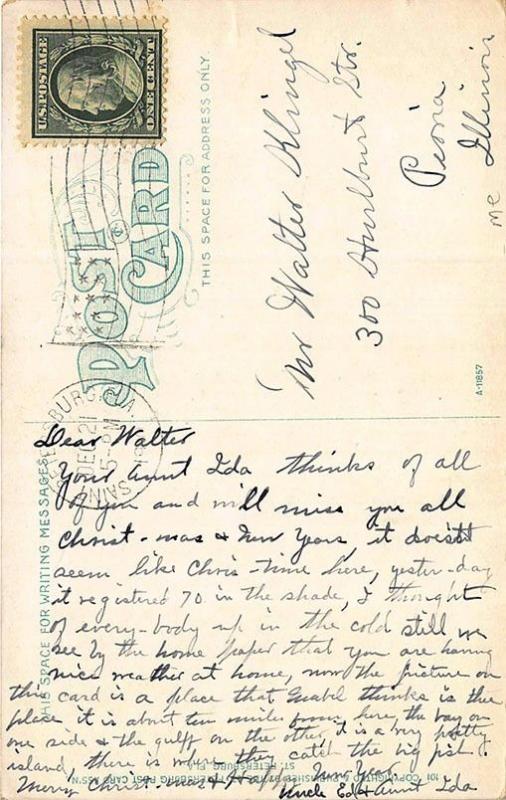 U.S. POSTAGE
ONE CENT
POST CARD
THIS SPACE FOR ADDRESS ONLY.
Mr Walter Klingel
300 Hurlburt Str.
Peoria
Illinois
me
A-11857
SAINT PETERSBURG, FLA.
DEC 21
5-PM
THIS SPACE FOR WRITING MESSAGES
Dear Walter
Your aunt Ida thinks of all
of you and will miss you all
Christ-mas & New Years, it doesn't
seem like Chris-time here, yester-day
it registered 70 in the shade, I thought
of every-body up in the cold still we
see by the home paper that you are having
nice weather at home, now the picture on
this card is a place that Mabel thinks is the
place it is about ten miles from here, the bay on
one side & the gulf on the other, it is a very pretty
island, there is where they catch the big fish.
Merry Christ-mas & Happy New Year
Uncle Ed & Aunt Ida
101 COPYRIGHTED & PUBLISHED BY ST. PETERSBURG POST CARD ASS'N
ST. PETERSBURG, FLA.